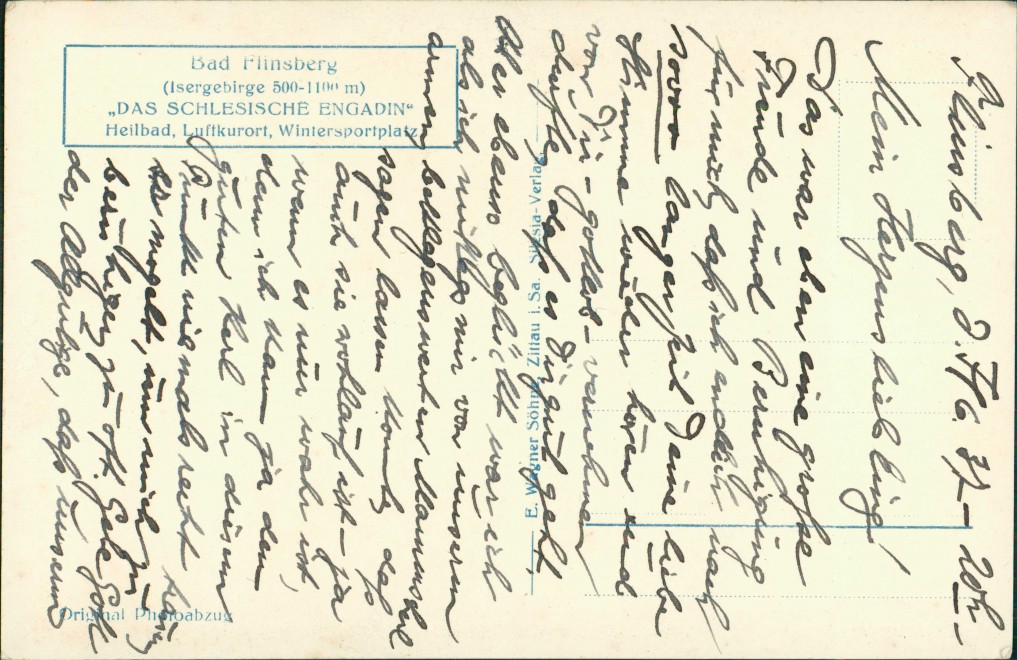 Bad Flinsberg
(Isergebirge 500-1100 m)
„DAS SCHLESISCHE ENGADIN“
Heilbad, Luftkurort, Wintersportplatz
E. Wagner Söhne, Zittau i. Sa. Silesia-Verlag.
Original Photoabzug
Flinsberg, d. 7/6. 37 –
Mein Herzensliebling!
Das war eben eine große
Freude und Beruhigung
für mich, daß ich endlich nach
soooo langer Zeit Deine liebe
Stimme wieder hören und
von Dir – gottlob – vernehmen
durfte, daß es Dir gut geht.
Aber ebenso beglückt war ich
als ich mir von unserem
armen, beklagenswerten
sagen lassen konnte, daß
auch sie wohlauf ist – ja
wenn es nur wahr ist,
denn ich kann ja den
guten Kerl in diesem
Punkt niemals recht
, um mich zu
beruhigen, zu oft. Gebe Gott
der Allgütige, daß unserem